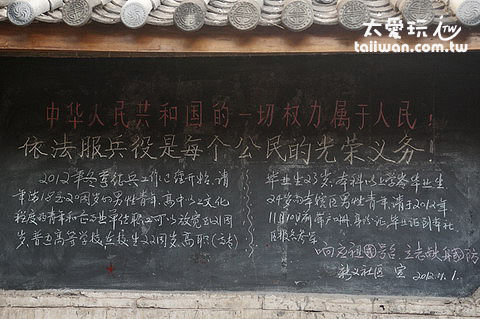 太愛玩
taiiwan.com.tw
中华人民共和国的一切权力属于人民！
依法服兵役是每个公民的光荣义务！
2012年冬季征兵工作已经开始，请
年满18至20周岁的男性青年，高中以上文化
程度的青年和 业 任职 可以放宽到21周
岁，普通高等学校在校生22周岁，高职（专）
毕业生23岁，本科以上学历毕业生
24岁 本辖区男性青年，请于2012年
11月10日前 户口册，身份证，毕业证到本社
区报名参军
响应祖国号召 立志献身国防
社区 宣 2012.11.1.